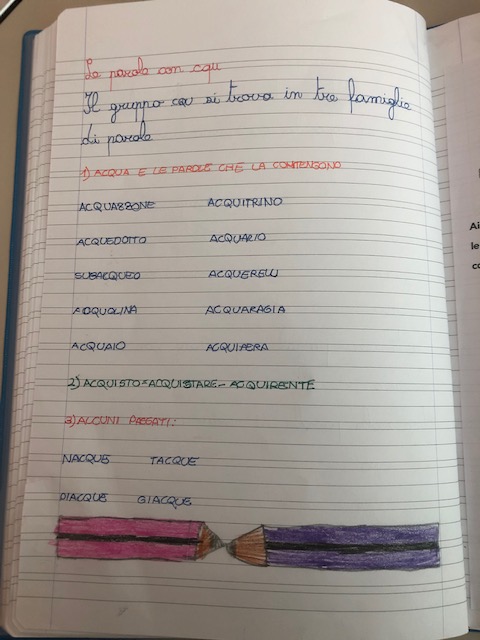 Le parole con cqu
Il gruppo cqu si trova in tre famiglie
di parole
1) ACQUA E LE PAROLE CHE LA CONTENGONO
ACQUAZZONE ACQUITRINO
ACQUEDOTTO ACQUARIO
SUBACQUEO ACQUERELLI
ACQUOLINA ACQUARAGIA
ACQUAIO ACQUIFERA
2) ACQUISTO-ACQUISTARE-ACQUIRENTE
3) ALCUNI PASSATI:
NACQUE TACQUE
PIACQUE GIACQUE
Ai
le
co